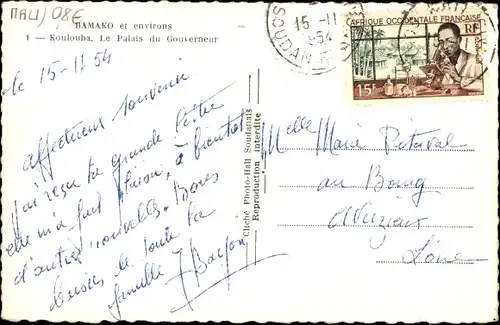 MALI 08E
BAMAKO et environs
1 — Koulouba. Le Palais du Gouverneur
15 -11
1954
SOUDAN
AFRIQUE OCCIDENTALE FRANÇAISE
RF
15F
le 15-11 54
Affectueux souvenir
J'ai reçu ta grande lettre
elle m'a fait plaisir, à bientôt
d'autres nouvelles. Bons
baisers de toute la
famille
Cliché Photo-Hall Soudanais
Reproduction interdite
Melle Marie Pitaval
au Bourg
Veizieux
Loire